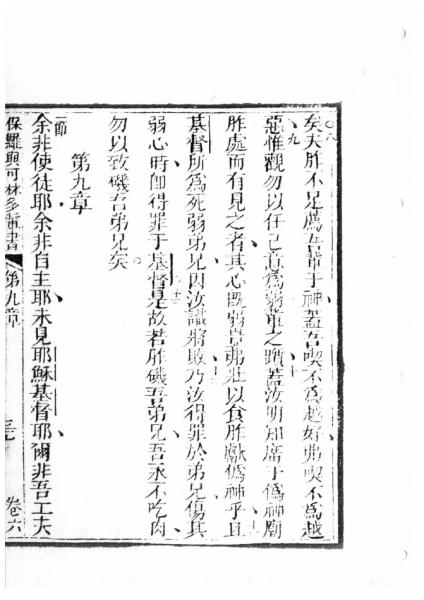 矣夫胙不足薦吾輩于神蓋吾喫不爲越好弗喫不爲越
惡惟觀勿以任己意爲弱輩之躓蓋汝明知席于偽神廟
胙處而有見之者其心既弱豈弗壯以食胙獻偽神乎且
基督所爲死弱弟兄因汝識將敗乃汝得罪於弟兄傷其
弱心時即得罪于基督是故若胙磯吾弟兄吾永不吃肉
勿以致磯吾弟兄矣
第九章
一節 余非使徒耶余非自主耶未見耶穌基督耶爾非吾工夫
保羅與可林多輩書 第九章 卷六